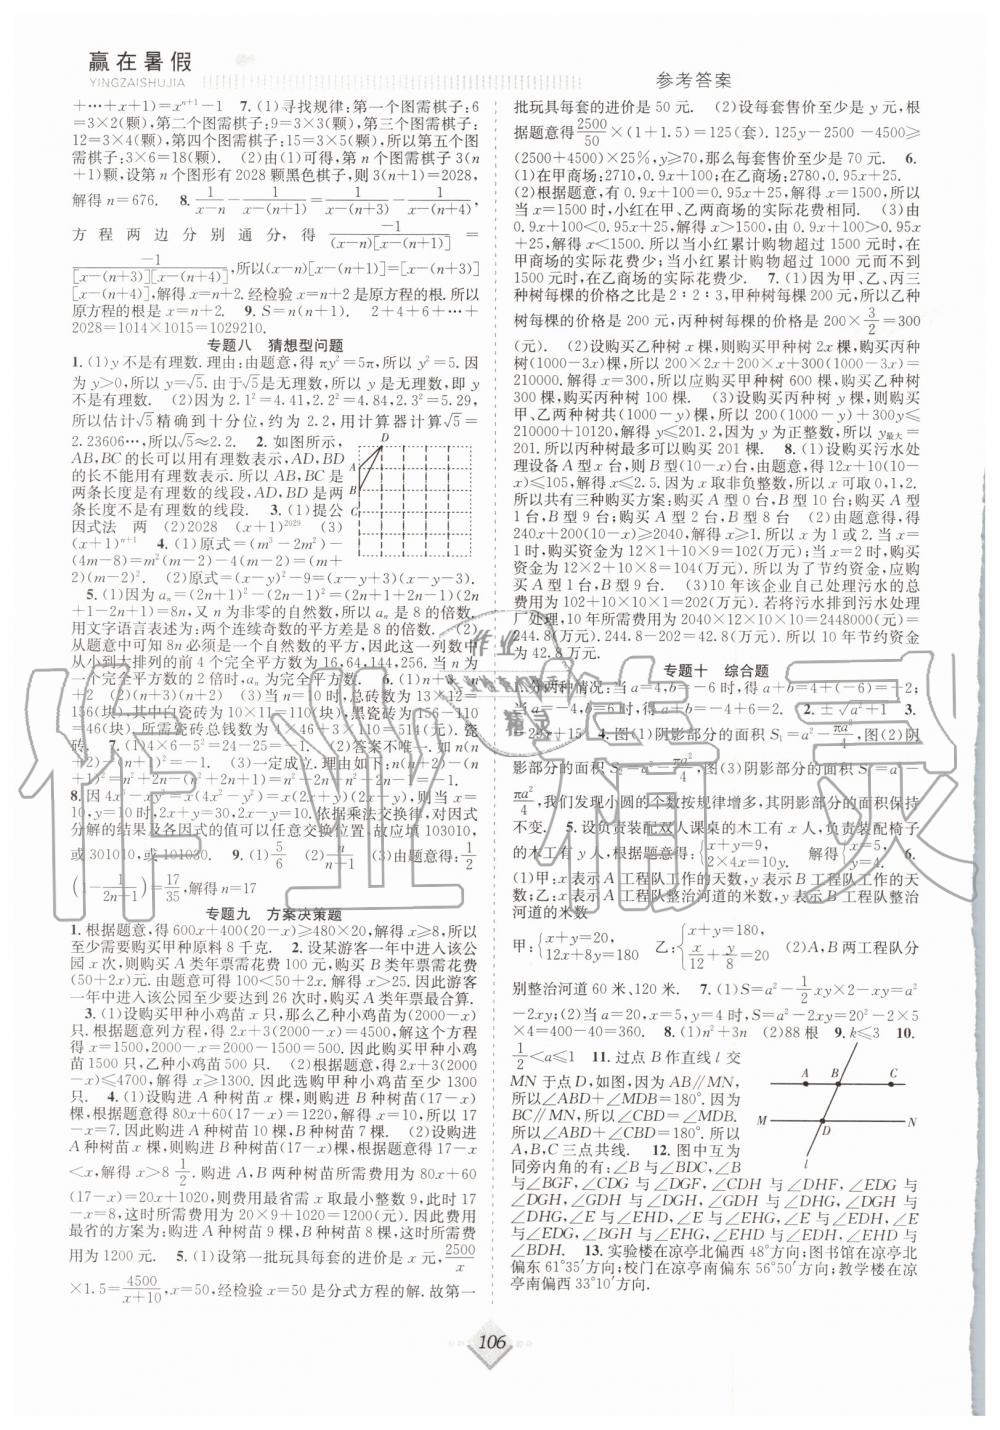 赢在暑假
YINGZAISHUJIA
参考答案
+…+x+1)=xⁿ⁺¹-1 7. (1)寻找规律:第一个图需棋子:6
=3×2(颗),第二个图需棋子:9=3×3(颗),第三个图需棋子:
12=3×4(颗),第四个图需棋子:15=3×5(颗),所以第五个图
需棋子:3×6=18(颗). (2)由(1)可得,第 n 个图需棋子 3(n
+1)颗,设第 n 个图形有 2028 颗黑色棋子,则 3(n+1)=2028,
解得 n=676. 8. 1/(x-n) - 1/(x-(n+1)) = 1/(x-(n+3)) - 1/(x-(n+4)),
方程两边分别通分,得 -1/((x-n)[x-(n+1)]) =
-1/([x-(n+3)][x-(n+4)]),所以(x-n)[x-(n+1)]=[x-(n+3)]
[x-(n+4)],解得 x=n+2. 经检验 x=n+2 是原方程的根. 所以
原方程的根是 x=n+2. 9. S=n(n+1). 2+4+6+…+
2028=1014×1015=1029210.
专题八 猜想型问题
1. (1)y 不是有理数. 理由:由题意,得 πy²=5π,所以 y²=5. 因
为 y>0,所以 y=√5. 由于√5是无理数,所以 y 是无理数,即 y
不是有理数. (2)因为 2.1²=4.41,2.2²=4.84,2.3²=5.29,
所以估计√5精确到十分位,约为 2.2,用计算器计算√5=
2.23606…,所以√5≈2.2. 2. 如图所示,
AB,BC 的长可以用有理数表示,AD,BD
的长不能用有理数表示. 所以 AB,BC 是
两条长度是有理数的线段,AD,BD 是两
条长度是无理数的线段. 3. (1)提公
因式法 两 (2)2028 (x+1)²⁰²⁹ (3)
(x+1)ⁿ⁺¹ 4. (1)原式=(m³-2m²)-
(4m-8)=m²(m-2)-4(m-2)=(m+
2)(m-2)². (2)原式=(x-y)²-9=(x-y+3)(x-y-3).
5. (1)因为 aₙ=(2n+1)²-(2n-1)²=(2n+1+2n-1)(2n
+1-2n+1)=8n,又 n 为非零的自然数,所以 aₙ 是 8 的倍数.
用文字语言表述为:两个连续奇数的平方差是 8 的倍数. (2)
从小到大排列的前 4 个完全平方数为 16,64,144,256. 当 n 为
一个完全平方数的 2 倍时,aₙ 是一个完全平方数. 6.
专题九 方案决策题
1. 根据题意,得 600x+400(20-x)≥480×20,解得 x≥8,所以
至少需要购买甲种原料 8 千克. 2. 设某游客一年中进入该公
园 x 次,则购买 A 类年票需花费 100 元,购买 B 类年票需花费
(50+2x)元. 由题意可得 100<50+2x. 解得 x>25. 因此游客
一年中进入该公园至少要达到 26 次时,购买 A 类年票最合算.
3. (1)设购买甲种小鸡苗 x 只,那么乙种小鸡苗为(2000-x)
只. 根据题意列方程,得 2x+3(2000-x)=4500,解这个方程
得 x=1500,2000-x=2000-1500=500. 因此购买甲种小鸡
苗 1500 只,乙种小鸡苗 500 只. (2)根据题意得 2x+3(2000
-x)≤4700,解得 x≥1300. 因此选购甲种小鸡苗至少 1300
只. 4. (1)设购进 A 种树苗 x 棵,则购进 B 种树苗(17-x)
棵,根据题意得 80x+60(17-x)=1220,解得 x=10,所以 17
-x=7. 因此购进 A 种树苗 10 棵,B 种树苗 7 棵. (2)设购进
A 种树苗 x 棵,则购进 B 种树苗(17-x)棵,根据题意得 17-x
<x,解得 x>8 1/2. 购进 A,B 两种树苗所需费用为 80x+60
(17-x)=20x+1020,则费用最省需 x 取最小整数 9,此时 17-
x=8,这时所需费用为 20×9+1020=1200(元). 因此费用
最省的方案为:购进 A 种树苗 9 棵,B 种树苗 8 棵,这时所需费
用为 1200 元. 5. (1)设第一批玩具每套的进价是 x 元,2500/x
×1.5=4500/(x+10),x=50,经检验 x=50 是分式方程的解. 故第一
批玩具每套的进价是 50 元. (2)设每套售价至少是 y 元,根
据题意得2500/50×(1+1.5)=125(套). 125y-2500-4500≥
(2500+4500)×25%,y≥70,那么每套售价至少是 70 元. 6.
(1)在甲商场:2710,0.9x+100;在乙商场:2780,0.95x+25.
(2)根据题意,有 0.9x+100=0.95x+25,解得 x=1500,所以
当 x=1500 时,小红在甲、乙两商场的实际花费相同. (3)由
0.9x+100<0.95x+25,解得 x>1500,由 0.9x+100>0.95x
+25,解得 x<1500. 所以当小红累计购物超过 1500 元时,在
甲商场的实际花费少;当小红累计购物超过 1000 元而不到
1500 元时,在乙商场的实际花费少. 7. (1)因为甲、乙、丙三
种树每棵的价格之比是 2∶2∶3,甲种树每棵 200 元,所以乙种
树每棵的价格是 200 元,丙种树每棵的价格是 200×3/2=300
(元). (2)设购买乙种树 x 棵,则购买甲种树 2x 棵,购买丙种
树(1000-3x)棵. 根据题意得 200×2x+200x+300(1000-3x)=
210000. 解得 x=300,所以应购买甲种树 600 棵,购买乙种树
300 棵,购买丙种树 100 棵. (3)设购买丙种树 y 棵,则购买
甲、乙两种树共(1000-y)棵. 所以 200(1000-y)+300y≤
210000+10120,解得 y≤201.2,因为 y 为正整数,所以 y最大=
201. 所以丙种树最多可以购买 201 棵. 8. (1)设购买污水处
理设备 A 型 x 台,则 B 型(10-x)台,由题意,得 12x+10(10-
x)≤105,解得 x≤2.5. 因为 x 取非负整数,所以 x 可取 0,1,2.
所以共有三种购买方案:购买 A 型 0 台,B 型 10 台;购买 A 型
1 台,B 型 9 台;购买 A 型 2 台,B 型 8 台 (2)由题意得,得
240x+200(10-x)≥2040,解得 x≥1. 所以 x 为 1 或 2. 当 x=
1 时,购买资金为 12×1+10×9=102(万元);当 x=2 时,购买
资金为 12×2+10×8=104(万元),所以为了节约资金,应购
买 A 型 1 台,B 型 9 台. (3)10 年该企业自己处理污水的总
费用为 102+10×10×1=202(万元). 若将污水排到污水处理
厂处理,10 年所需费用为 2040×12×10×10=2448000(元)=
244.8(万元). 244.8-202=42.8(万元). 所以 10 年节约资金
为 42.8 万元.
专题十 综合题
不变. 5. 设负责装配双人课桌的木工有 x 人,负责装配椅子
的木工有 y 人,根据题意得:{x+y=9, 2×4x=10y. 解得{x=5, y=4. 6.
(1)甲:x 表示 A 工程队工作的天数,y 表示 B 工程队工作的天
数;乙:x 表示 A 工程队整治河道的米数,y 表示 B 工程队整治
河道的米数
甲:{x+y=20, 12x+8y=180 乙:{x+y=180, x/12+y/8=20 (2)A,B 两工程队分
别整治河道 60 米、120 米. 7. (1)S=a²-1/2xy×2=a²
-2xy;(2)当 a=20,x=5,y=4 时,S=a²-2xy=20²-2×5
×4=400-40=360. 8. (1)n²+3n (2)88 根 9. k≤3 10.
1/2<a≤1 11. 过点 B 作直线 l 交
MN 于点 D,如图,因为 AB∥MN,
所以∠ABD+∠MDB=180°. 因为
BC∥MN,所以∠CBD=∠MDB.
所以∠ABD+∠CBD=180°. 所以
A,B,C 三点共线. 12. 图中互为
同旁内角的有:∠B 与∠BDC,∠B 与
∠BGF,∠CDG 与∠DGF,∠CDH 与∠DHF,∠EDG 与
∠DGH,∠GDH 与∠DGH,∠GDH 与∠DHG,∠DGH 与
∠DHG,∠E 与∠EHD,∠E 与∠EHG,∠E 与∠EDH,∠E 与
∠EDG,∠B 与∠EDB,∠B 与∠EHG,∠B 与∠BDH,∠EHB 与
∠BDH. 13. 实验楼在凉亭北偏西 48°方向;图书馆在凉亭北
偏东 61°35′方向;校门在凉亭南偏东 56°50′方向;教学楼在凉
亭南偏西 33°10′方向.
D
A
B
C
A B C
M D N
l
106
作业精灵